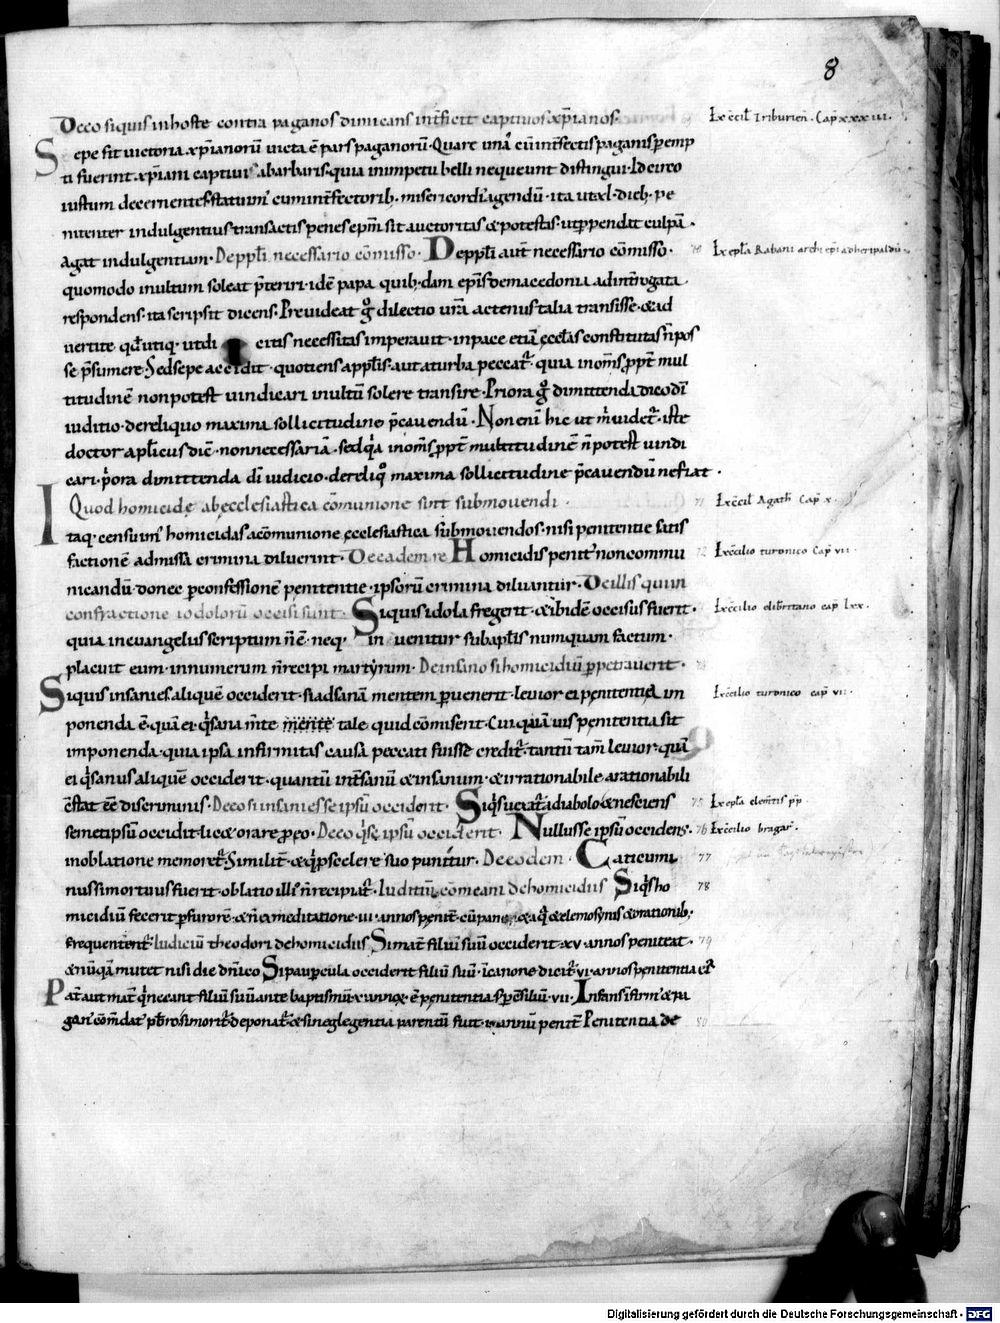 8
De eo si quis in hoste contra paganos dimicans int̄ficit captiuos xp̄ianos. Ex c̄cil̄ Triburien̄. Cap̄ xxxiiii.
Sepe fit uictoria xp̄ianorū uicta ē pars paganorū. Quare una cū int̄fectis paganis p̄emp
ti fuerint xp̄iani captiui a barbaris. quia in impetu belli nequeunt distingui. Idcirco
iustum decernentes statuim᾽ cum int̄fectorib; misericordit᾽ agendū. ita ut xl. dieb; pe
nitenter indulgentius transactis penes ep̄m sit auctoritas & potestas. ut p̄pendat culpā.
agat indulgentiam. De pp̄li necessario cōmisso. De pp̄li aut̄ necessario cōmisso. 70 Ex ep̄la Rabani archiep̄i ad heripaldū
quomodo inultum soleat p̄teriri. idē papa quib;dam ep̄is de macedonia ad int̄rogata
respondens. ita scripsit dicens. Preuideat g̊ dilectio ur̄a actenus talia transisse. & ad
uertite qd̄ utiq; ut di citis necessitas imperauit. in pace etiā ęcclas constitutas n̄ pos
se p̄sumere. Sed sepe accidit. quotiens a pp̄lis. aut a turba peccat̄. quia in om̄s ꝓpt̄ mul
titudinē non potest uindicari inultū solere transire. Priora g̊ dimittenda dico dī
iuditio. de reliquo maxima sollicitudine p̄cauendū. Non eni hic ut m̄ uidet̄. iste
doctor ap̄licus dic̄. non necessariā. sed q̄a in om̄s ꝓpt̄ multitudinē n̄ potest uindi
cari. p̄ora dimittenda dī iudicio. de reliq̊ maxima sollicitudine p̄cauendū ne fiat.
Quod homicide ab ecclesiastica cōmunione sint submouendi. 71 Ex c̄cil̄ Agath̄ Cap̄ x.
Itaq. censuim᾽ homicidas a cōmunione ęcclesiastica submouendos. nisi penitentie satis
factionē admissa crimina diluerint. De eadem re Homicidis penit᾽ non commu 72 Ex c̄cilio turonico Cap̄ vii.
nicandū. donec p̄ confessionē penitentie. ipsorū crimina diluantur. De illis qui in
confractione idolorū occisi sunt. Si quis idola fregerit. & ibidē occisus fuerit. Ex c̄cilio elibertano cap̄ lxx.
quia in euangeliis scriptum n̄ ē. neq; in uenitur sub ap̄lis numquam factum.
placuit eum. in numerum n̄ recipi martyrum. De insano si homicidiū ꝑpetrauerit.
Si quis insaniens aliquē occiderit. si ad sanā mentem ꝑuenerit. leuior ei penitentia in Ex c̄cilio turonico cap̄ vii.
ponenda ē. quā ei. q̄ sana m̄te mente tale quid cōmiserit. Cui quāuis penitentia sit
imponenda. quia ipsa infirmitas causa peccati fuisse credit̄. tantū tam̄ leuior. quā
ei q̄ sanus aliquē occiderit. quantū int̄ sanū & insanum. & irrationabile a rationabili
ēstat ēē discriminis. De eo si insaniens se ipsū occiderit. Siq̄s uexat̄ a diabolo & nesciens 75 Ex ep̄la clem̄tis pp̄
semetipsū occidit. licet orare ꝓ eo. De eo q̄ se ipsū occiderit. Nullus se ipsū occidens. 76 Ex c̄cilio bragar̄.
in oblatione memoret̄. Similit̄. & q̄ ꝓ scelere suo punitur. De eodem. Caticumi 77
nus si mortuus fuerit. oblatio illi n̄ recipiat̄. Iuditiū cōmeani de homicidiis Siq̄s ho 78
micidiū fecerit ꝑ furorē. & n̄ ex meditatione. iii. annos penit̄. cū pane & aq̄. & elemosynis & orationib;
frequentent̄. Iudiciū theodori de homicidiis Si mat̄ filiū suū occiderit. xv. annos peniteat. 79
& nūquā mutet nisi die dn̄ico Si paupercula occiderit filiū suū. in canone dicit̄ vi. annos penitentia
Pat̄ aut mat̄ q̄ necant filiū suū ante baptismū x. annos. ē penitentia vii. Infans infirm᾽ & pa
gan᾽ cōmdat᾽ pb̄ro si morit̄ deponat̄. & si neglegentia parentū fuit. i. annū penit̄ Penitentia de 80
Digitalisierung gefördert durch die Deutsche Forschungsgemeinschaft - DFG